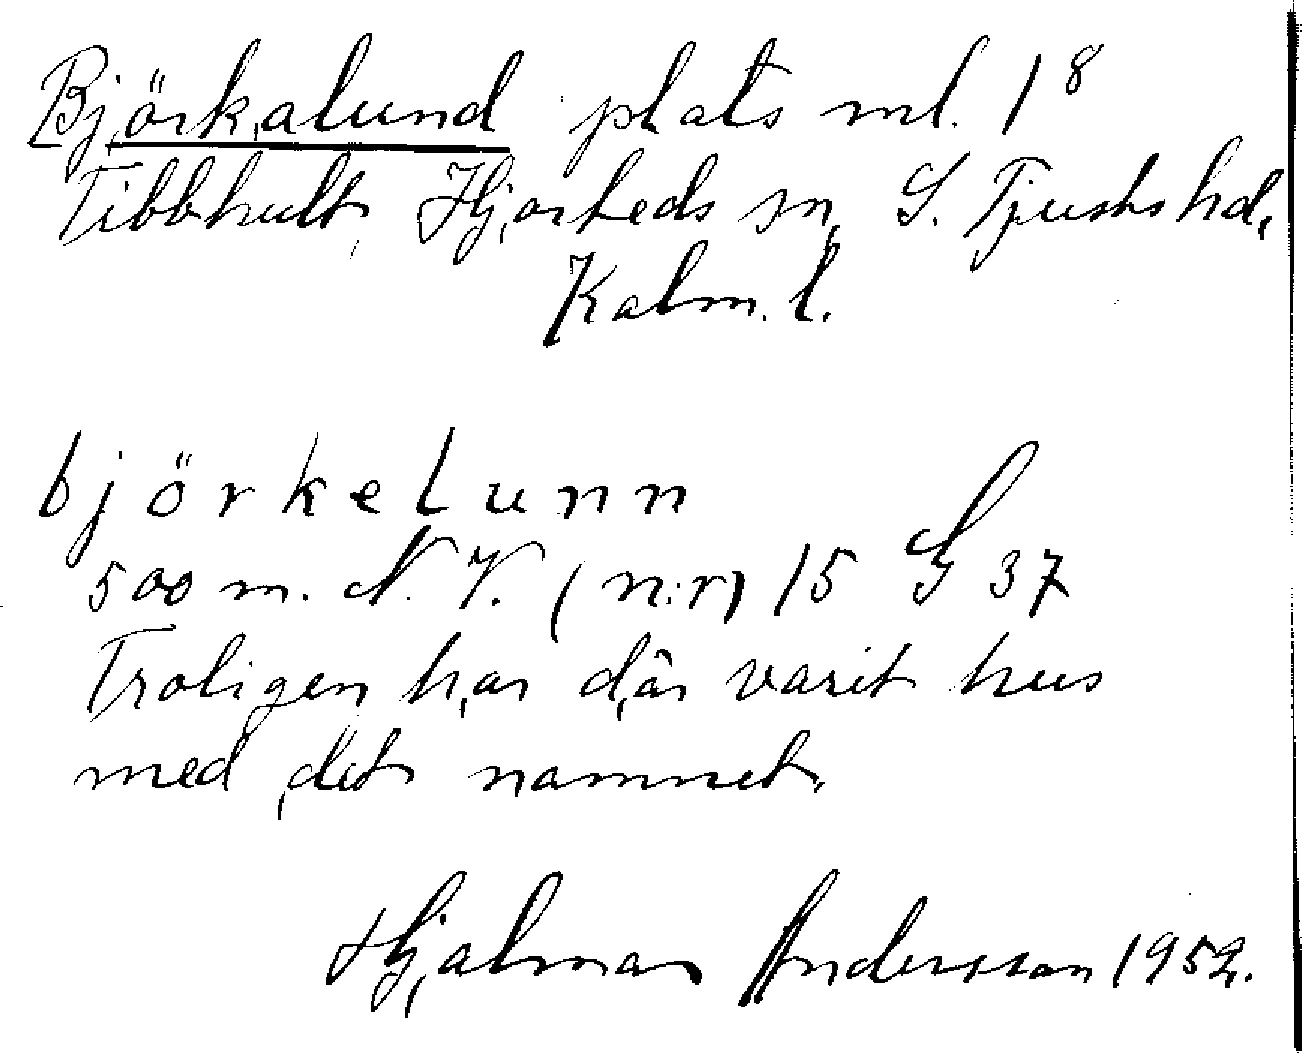 Björkalund plats ml. 1⁸
Tibbhult, Hjorteds sn, S. Tjusts hd,
Kalm. l.
björkelunn
500 m. N. V. (n:r) 15 G 37
Troligen har där varit hus
med det namnet.
Hjalmar Andersson 1952.